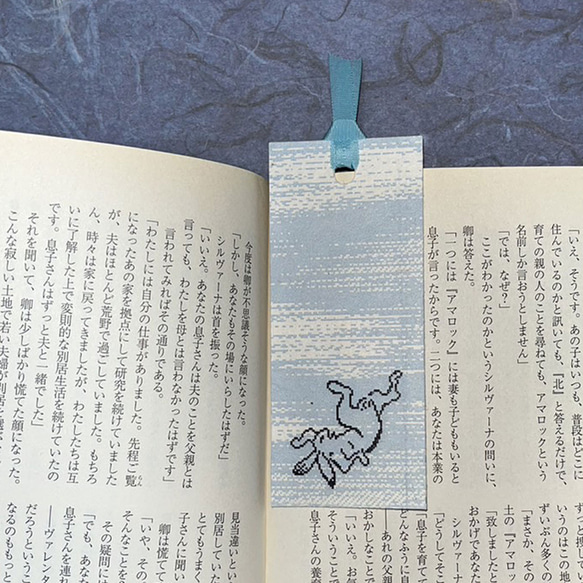 「いえ、そうです。あの子はいつも、普段はどこに
住んでいるのかと訊いても、『北』と答えるだけで、
育ての親の人のことを尋ねても、アマロックという
名前しか言おうとしません」
「では、なぜ?」
ここがわかったのかというシルヴァーナの問いに、
卿は答えた。
「一つには『アマロック』には妻も子どももいると
息子が言ったからです。二つには、あなたは本業の
いうのはこの地
ずいぶん多く
「まさか、その
土の『アマロッ
「致しました
おかげであな
シルヴァー
「どうしてそこ
息子を育て
どんなふうに
おかしなこと
――あれの父
「いえ。お気
そういうこと
息子さんの養
今度は卿が不思議そうな顔になった。
「しかし、あなたもその場にいらしたはずだ」
シルヴァーナは首を振った。
「いいえ。あなたの息子さんは夫のことを父親とは
言っても、わたしを母とは言わなかったはずです」
言われてみればその通りである。
「わたしには自分の仕事がありました。先程ご覧
になったあの家を拠点にして研究を続けていました
が、夫はほとんど荒野で過ごしていました。もちろ
ん、時々は家に戻ってきましたが、わたしたちは互
いに了解した上で変則的な別居生活を続けていたの
です。息子さんはずっと夫と一緒でした」
それを聞いて、卿は少しばかり慌てた顔になった。
こんな寂しい土地で若い夫婦が別居を選ぶ
見当違いとい
別居していた
とてもうまく
子さんに聞い
卿は慌てて
「いや、その
そんなことを
その疑問に
「でも、あな
息子さんを連れ
――ヴァレンタ
だろうというこ
なるのももっと